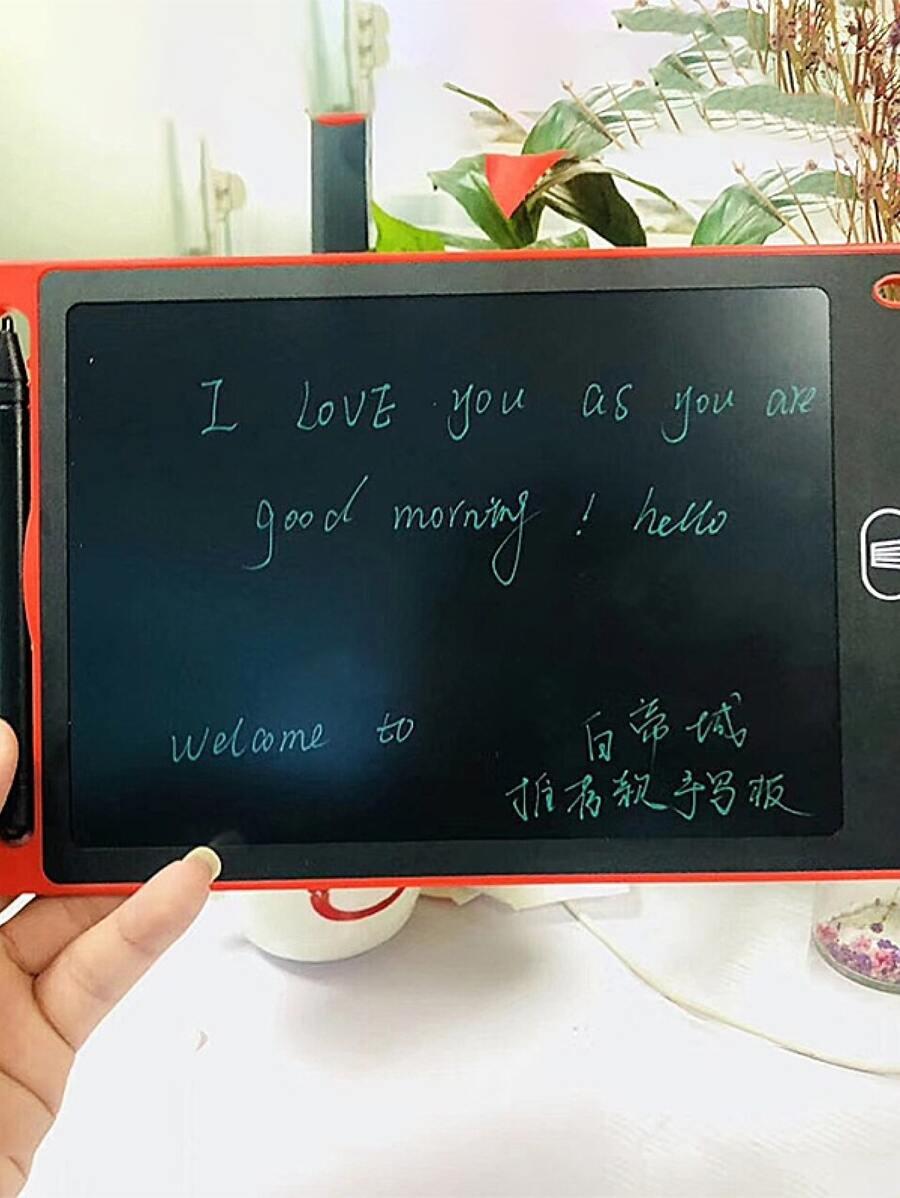 I LOVE you as you are
good morning ! hello
welcome to 白帝城
推荐款手写板